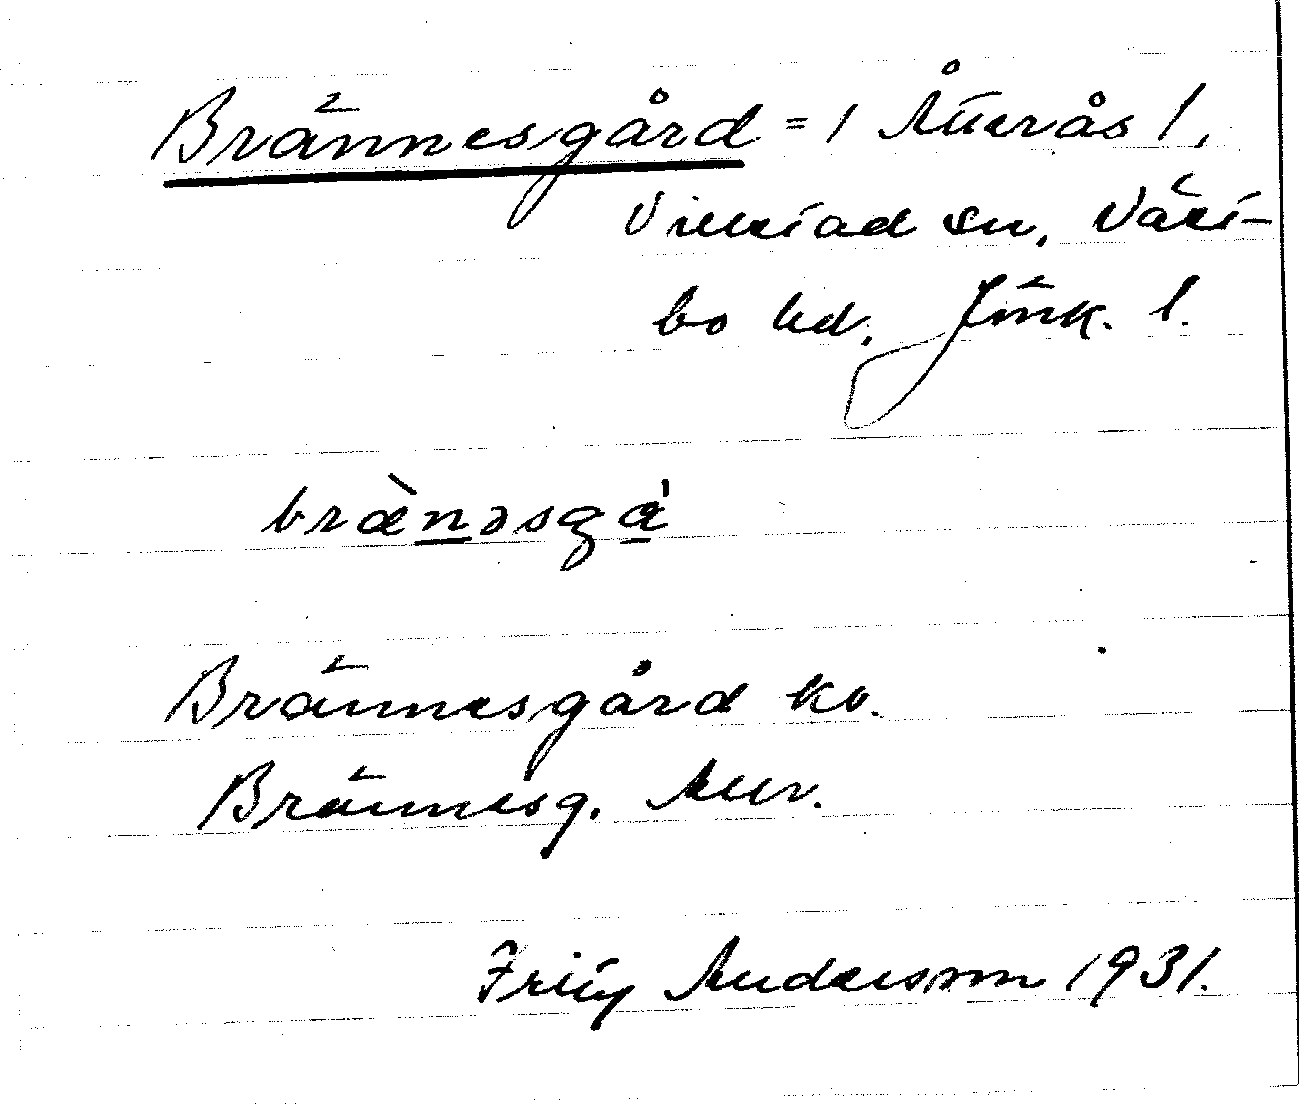 Brännesgård = 1 Åtterås 1,
Villstad sn, Väst-
bo hd, Jönk. l.
bræ̀nəsgá
Brännesgård kb.
Brännesg.
Fritz Andersson 1931.